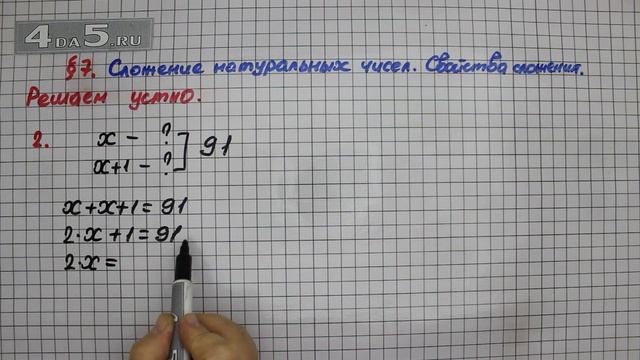 4DA5.RU
§7. Сложение натуральных чисел. Свойства сложения.
Решаем устно.
2. x - ?
x+1 - ? ] 91
x+x+1=91
2·x+1=91
2·x=